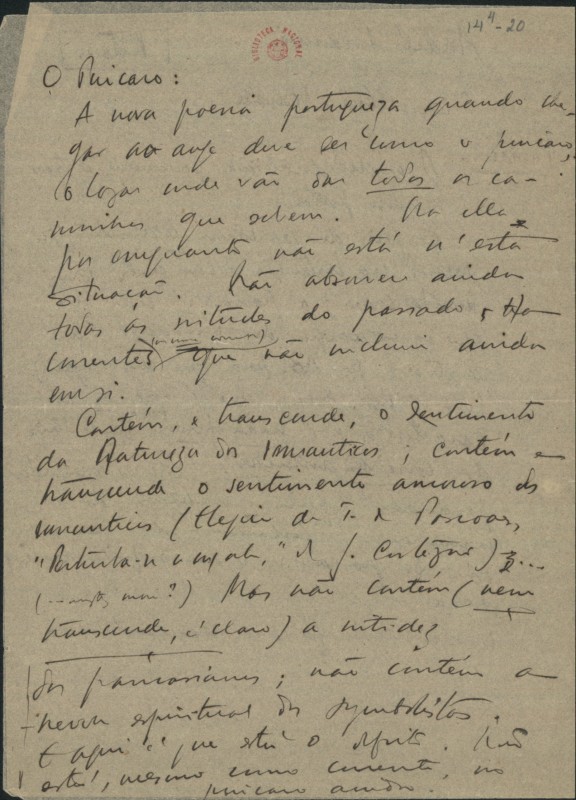 14⁴-20
BIBLIOTECA NACIONAL
O Pincaro:
A nova poesia portugueza quando che-
gar ao auge deve ser como o pincaro,
o logar onde vão dar todos os ca-
minhos que sobem. Ora ella
por emquanto não está n'esta
situação. Não absorveu ainda
todas as virtudes do passado, Ha
correntes que não incluiu ainda
em si.
Contém, e transcende, o sentimento
da Natureza dos romanticos; contém e
transcende o sentimento amoroso dos
romanticos (Elegia de T. de Pascoaes,
de J. Cortezão)...
(... mais?) Mas não contém (nem
transcende, é claro) a nitidez
dos parnasianos; não contém a
nevoa espiritual dos symbolistas.
E aqui é que está o defeito. Não
está, mesmo como corrente, no
pincaro ainda.